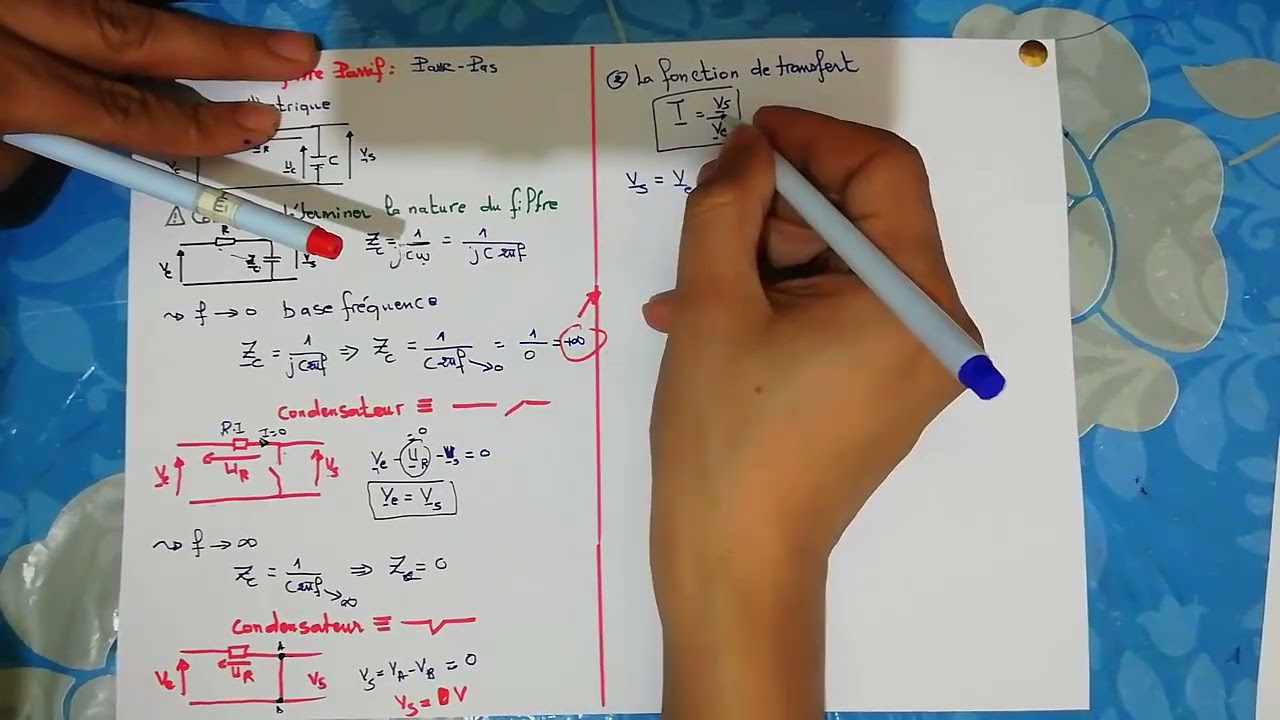 Passif: Passe-Bas
C
V_s
U_R
U_c
V_e
⚠ déterminer la nature du filtre
R
V_e
Z_c
V_s
Z_c = 1/jCω = 1/jC2πf
↝ f → 0 base fréquence
Z_c = 1/jC2πf ⇒ Z_c = 1/C2πf→0 = 1/0 = +∞
Condensateur ≡
R.I I=0
V_e
U_R
V_s
V_e - U_R - V_s = 0
→0
V_e = V_s
↝ f → ∞
Z_c = 1/C2πf→∞ ⇒ Z_c = 0
Condensateur ≡
A
V_e
U_R
V_s
B
V_s = V_A - V_B = 0
V_s = 0 V
② La fonction de transfert
T = V_s/V_e
V_s = V_e